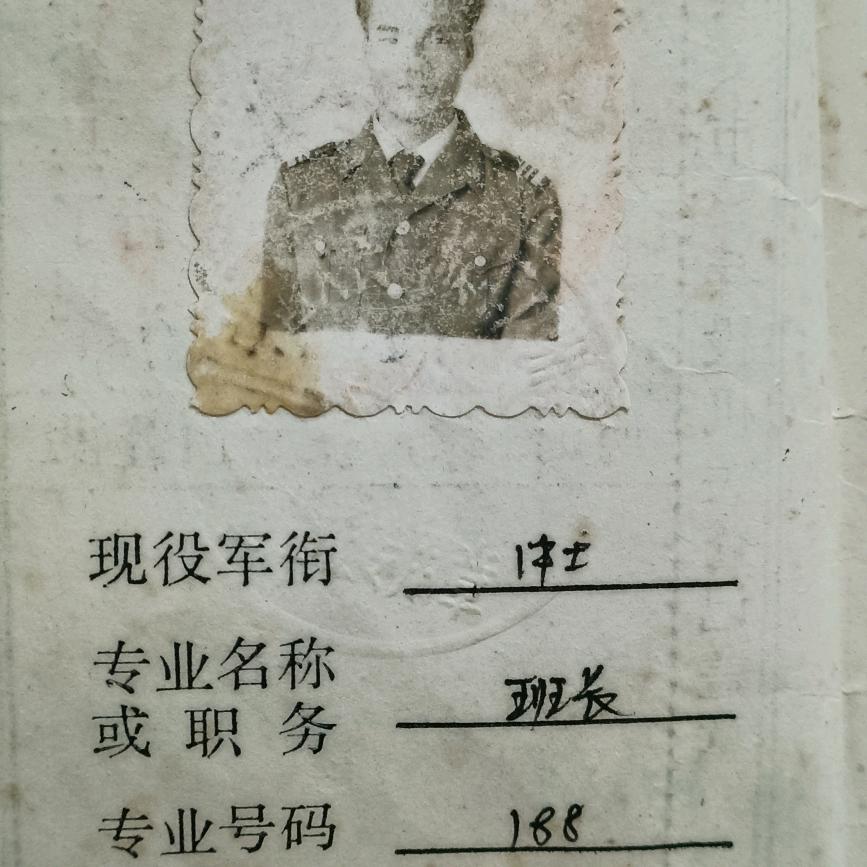 现役军衔 中士
专业名称
或职务 班长
专业号码 188